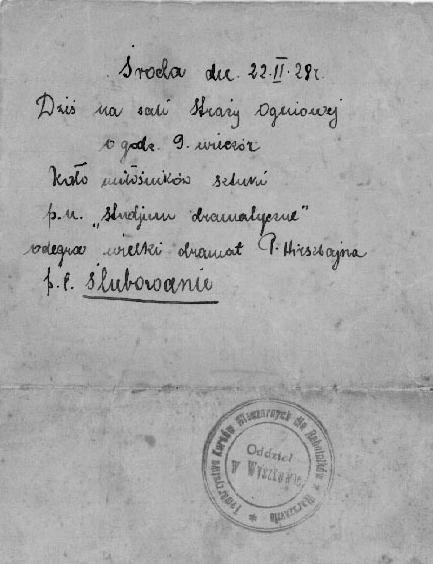 Środa dn. 22.II.28r.
Dziś na sali Straży Ogniowej
o godz. 9. wieczór
Koło miłośników sztuki
p.n. „Studjum dramatyczne"
odegra wielki dramat P. Hirszbajna
p.t. Ślubowanie
Towarzystwo Kursów Wieczornych dla Robotników w Warszawie *
Oddział
w Wyszkowie